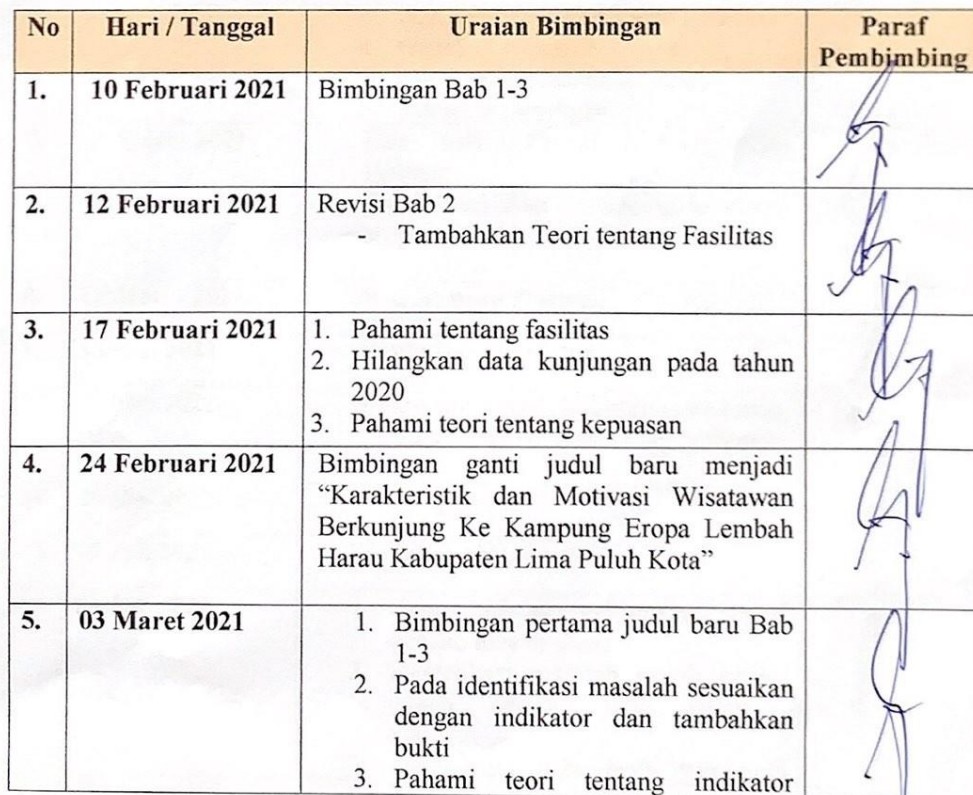 No Hari / Tanggal Uraian Bimbingan Paraf
Pembimbing
1. 10 Februari 2021 Bimbingan Bab 1-3
2. 12 Februari 2021 Revisi Bab 2
- Tambahkan Teori tentang Fasilitas
3. 17 Februari 2021 1. Pahami tentang fasilitas
2. Hilangkan data kunjungan pada tahun
2020
3. Pahami teori tentang kepuasan
4. 24 Februari 2021 Bimbingan ganti judul baru menjadi
“Karakteristik dan Motivasi Wisatawan
Berkunjung Ke Kampung Eropa Lembah
Harau Kabupaten Lima Puluh Kota”
5. 03 Maret 2021 1. Bimbingan pertama judul baru Bab
1-3
2. Pada identifikasi masalah sesuaikan
dengan indikator dan tambahkan
bukti
3. Pahami teori tentang indikator